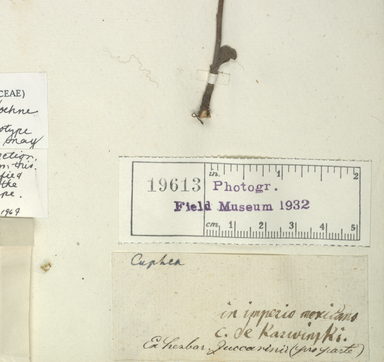 CEAE)
otype
may
ction
this
fied
the
pe.
1969
in. 1 2
19613 Photogr.
Field Museum 1932
cm. 1 2 3 4 5
Cuphea
in imperio mexicano
C. de Karwinski.
Ex herbar. Zuccarinii (pro parte)